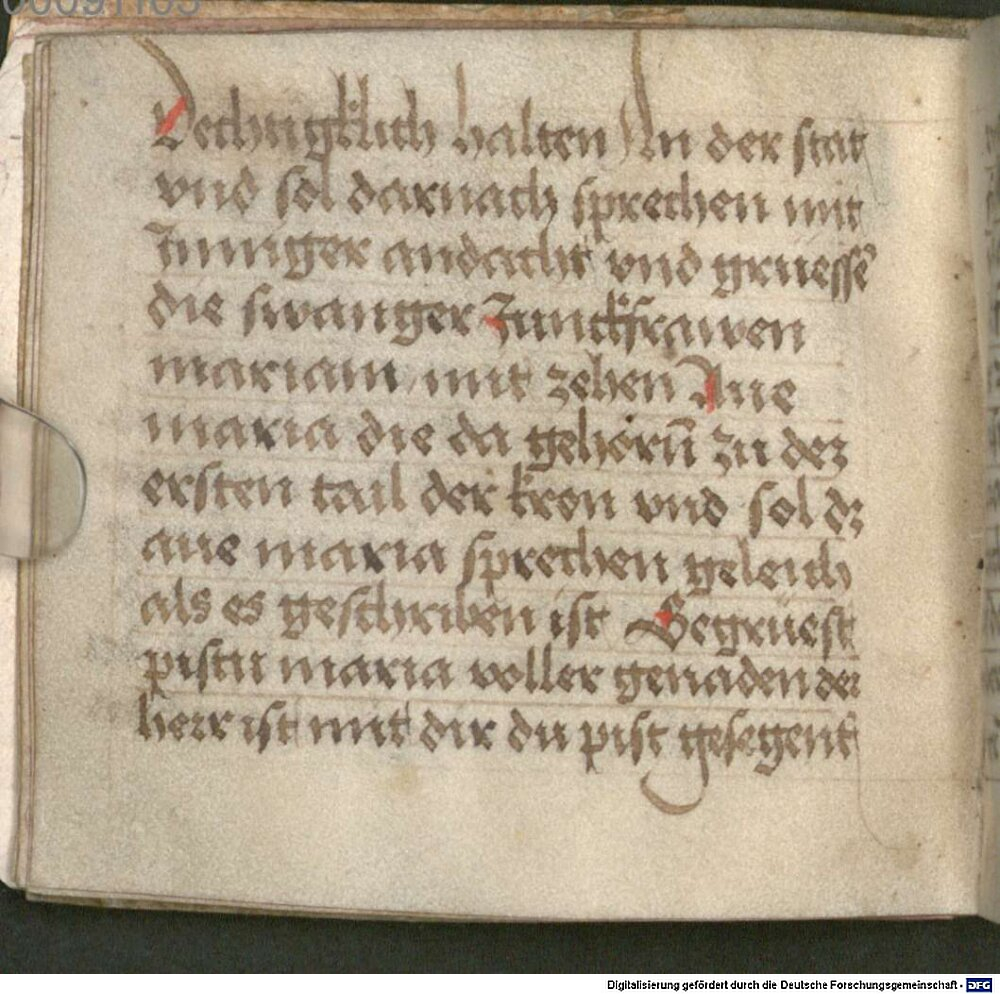 00091103
Dechtigklich halten An der stat
vnd sol darnach sprechen mit
Jnniger andacht vnd gruessē
die swanger Junckfrawen
mariam mit zehen Aue
maria die da gehörn̄ zu dez
ersten tail der kron vnd sol dz
aue maria sprechen geleich
als es geschriben ist Gegrüest
pistu maria voller genaden der
herr ist mit dir du pist gesegent
Digitalisierung gefördert durch die Deutsche Forschungsgemeinschaft - DFG